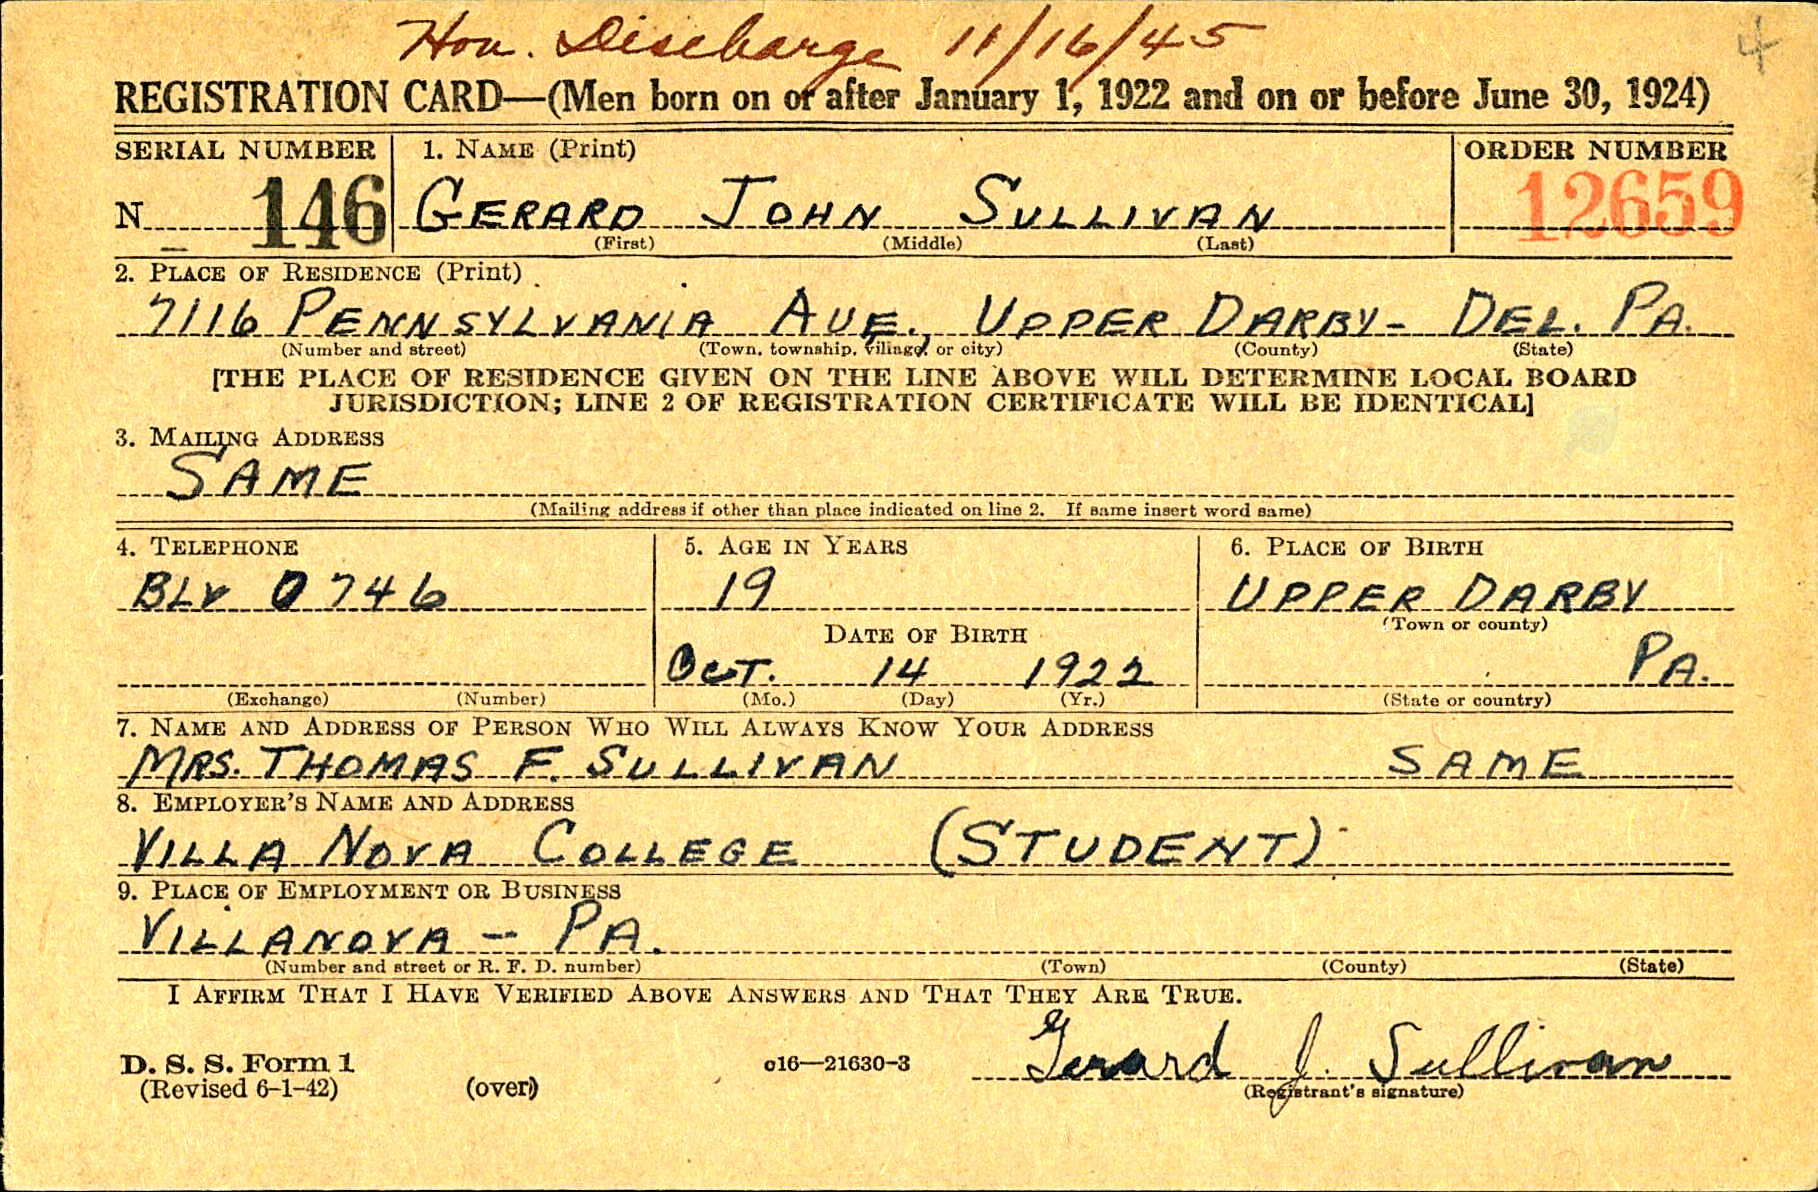 Hon. Discharge 11/16/45
4
REGISTRATION CARD—(Men born on or after January 1, 1922 and on or before June 30, 1924)
SERIAL NUMBER 1. NAME (Print) ORDER NUMBER
N 146 GERARD JOHN SULLIVAN 12659
(First) (Middle) (Last)
2. PLACE OF RESIDENCE (Print)
7116 PENNSYLVANIA AVE., UPPER DARBY - DEL. PA.
(Number and street) (Town, township, village, or city) (County) (State)
[THE PLACE OF RESIDENCE GIVEN ON THE LINE ABOVE WILL DETERMINE LOCAL BOARD
JURISDICTION; LINE 2 OF REGISTRATION CERTIFICATE WILL BE IDENTICAL]
3. MAILING ADDRESS
SAME
(Mailing address if other than place indicated on line 2. If same insert word same)
4. TELEPHONE 5. AGE IN YEARS 6. PLACE OF BIRTH
BLV 0746 19 UPPER DARBY
(Town or county)
DATE OF BIRTH
OCT. 14 1922 PA.
(Exchange) (Number) (Mo.) (Day) (Yr.) (State or country)
7. NAME AND ADDRESS OF PERSON WHO WILL ALWAYS KNOW YOUR ADDRESS
MRS. THOMAS F. SULLIVAN SAME
8. EMPLOYER'S NAME AND ADDRESS
VILLA NOVA COLLEGE (STUDENT)
9. PLACE OF EMPLOYMENT OR BUSINESS
VILLANOVA - PA.
(Number and street or R. F. D. number) (Town) (County) (State)
I AFFIRM THAT I HAVE VERIFIED ABOVE ANSWERS AND THAT THEY ARE TRUE.
Gerard J. Sullivan
D. S. S. Form 1 c16—21630-3
(Revised 6-1-42) (over) (Registrant's signature)